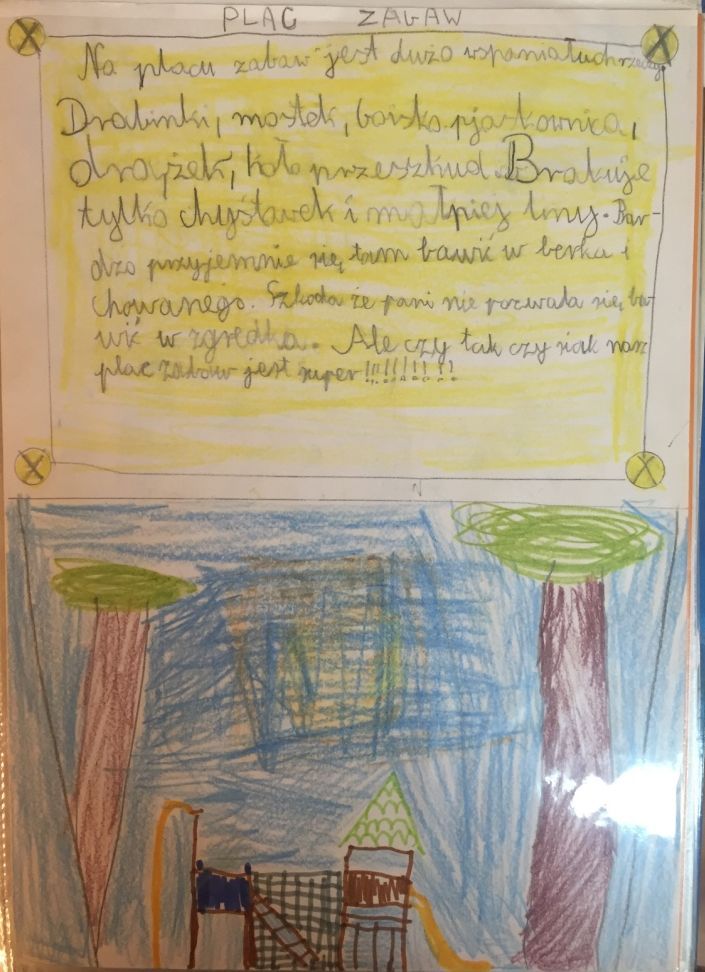 PLAC ZABAW
Na placu zabaw jest dużo wspaniałuch rzeczy.
Drabinki, mostek, boisko, pjaskownica,
drążek, koło przeszkud. Brakuje
tylko chyśtawek i małpiej liny. Bar-
dzo przyjemnie się tam bawić w berka i
chowanego. Szkoda że pani nie pozwala się ba-
wić w zgredka. Ale czy tak czy siak nasz
plac zabaw jest super!!!!!!!!